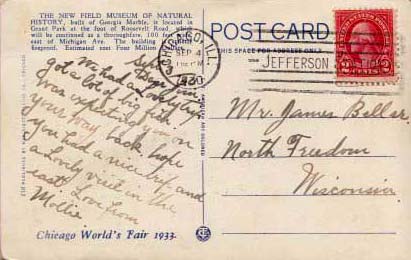 THE NEW FIELD MUSEUM OF NATURAL
HISTORY, built of Georgia Marble, is located in
Grant Park at the foot of Roosevelt Road, which
will be continued as a thoroughfare, 100 feet
east of Michigan Ave. The building is
fireproof. Estimated cost Four Million
POST CARD
THIS SPACE FOR ADDRESS ONLY
CHICAGO, ILL.
SEP 4
1930
JEFFERSON
2 CENTS 2
Sept
Dear Jim
We had a lovely trip
got a lot of big fish.
Was expecting you on
your way back hope
you had a nice trip and
a lovely visit in the
east Love from
Mollie
Mr. James Bellar.
North Freedom
Wisconsin
Chicago World's Fair 1933.